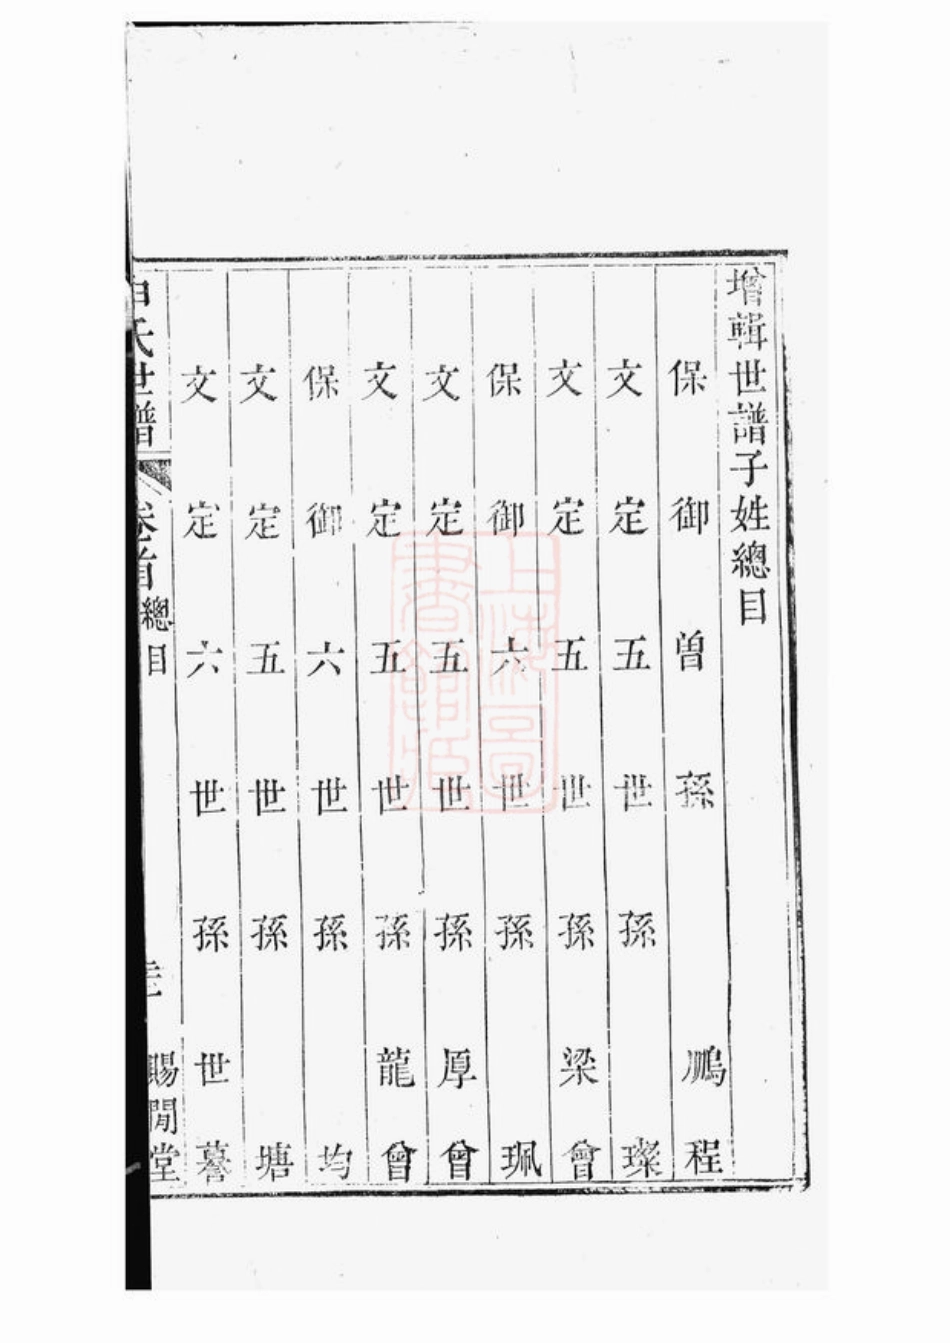 增輯世譜子姓總目
保御曾孫鵬程
文定五世孫璨
文定五世孫梁會
保御六世孫珮
文定五世孫厚會
文定五世孫龍會
保御六世孫均
文定五世孫塘
文定六世孫世謩
申氏世譜 卷首 總目 賜閒堂
上海圖書館藏